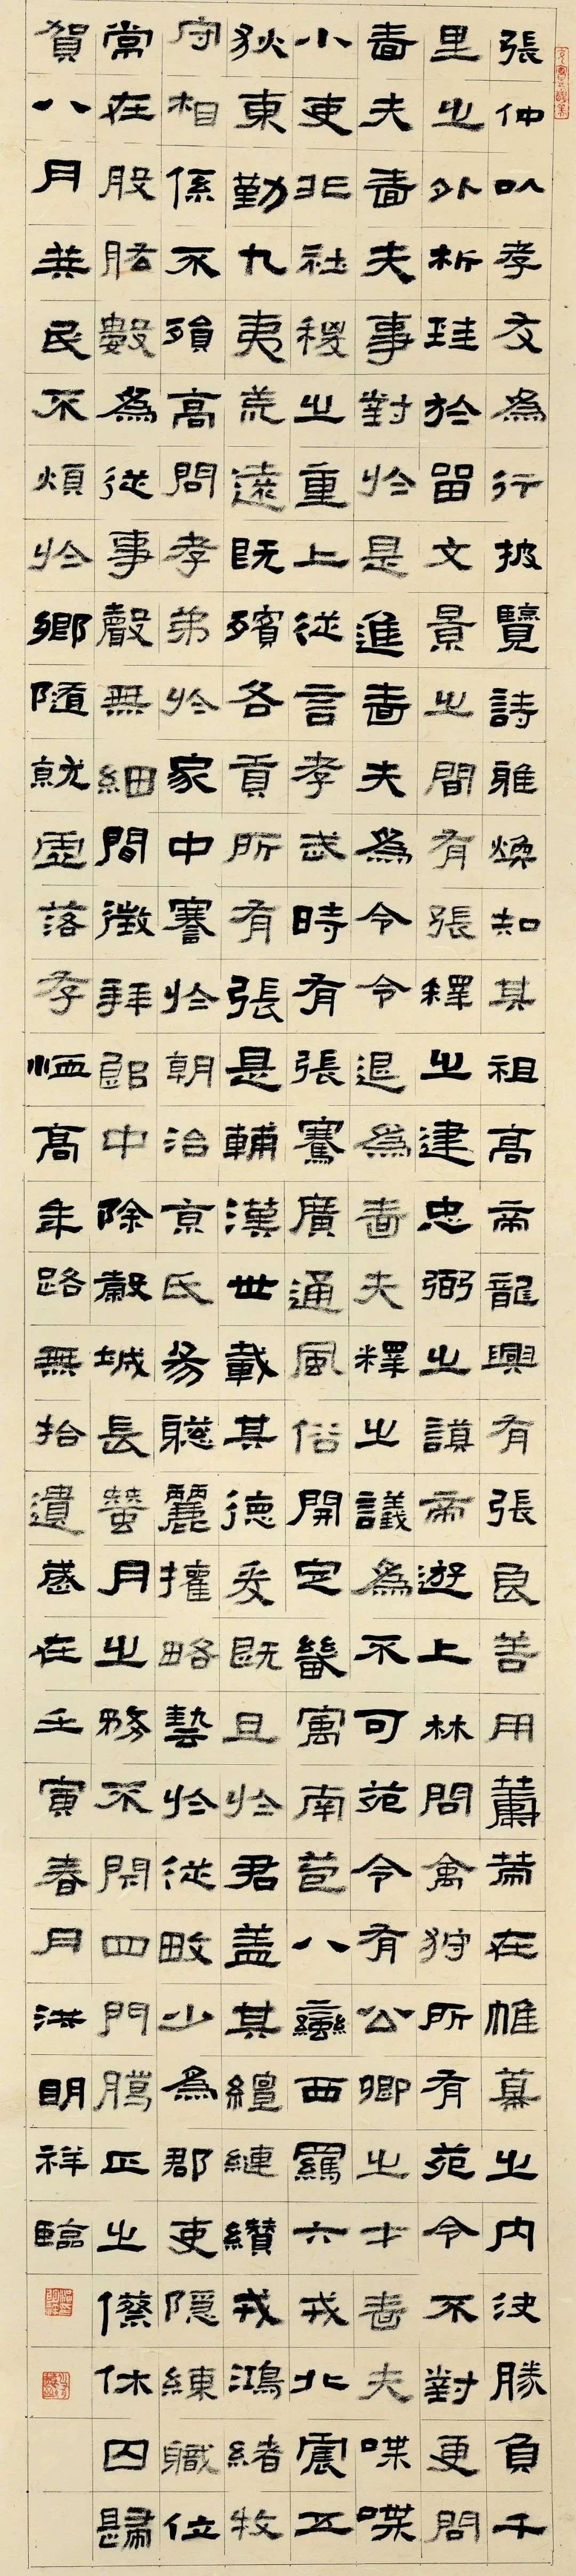 張仲以孝友為行披覽詩雅煥知其祖高帝龍興有張良善用籌策在帷幕之內決勝負千
里之外析珪於留文景之間有張釋之建忠弼之謨帝遊上林問禽狩所有苑令不對更問
嗇夫嗇夫事對於是進嗇夫為令令退為嗇夫釋之議為不可苑令有公卿之才嗇夫喋喋
小吏非社稷之重上從言孝武時有張騫廣通風俗開定畿寓南苞八蠻西羈六戎北震五
狄東勤九夷荒遠既殯各貢所有張是輔漢世載其德爰既且於君蓋其繵縺纘戎鴻緒牧
守相係不殞高問孝弟於家中謇於朝治京氏易聰麗權略藝於從畋少為郡吏隱練職位
常在股肱數為從事聲無細聞徵拜郎中除穀城長蠶月之務不閉四門騰正之僚休囚歸
賀八月筭民不煩於鄉隨就虛落存恤高年路無拾遺歲在壬寅春月洪明祥臨